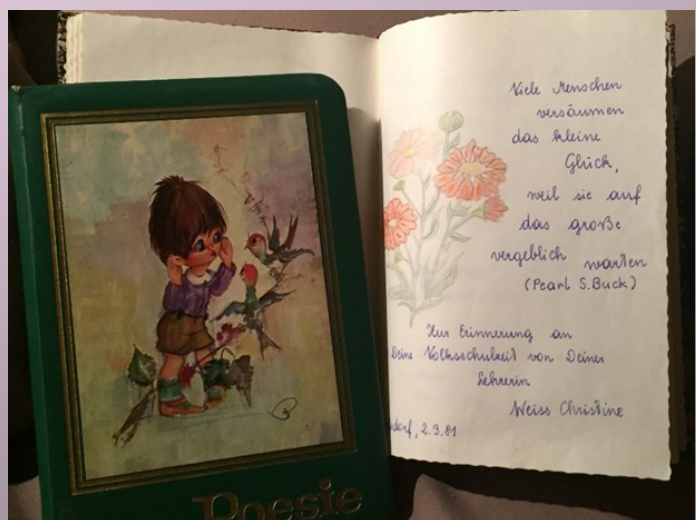 Viele Menschen
versäumen
das kleine
Glück,
weil sie auf
das große
vergeblich warten
(Pearl S. Buck)
Zur Erinnerung an
Deine Volksschulzeit von Deiner
Lehrerin
Weiss Christine
2.3.81
Poesie